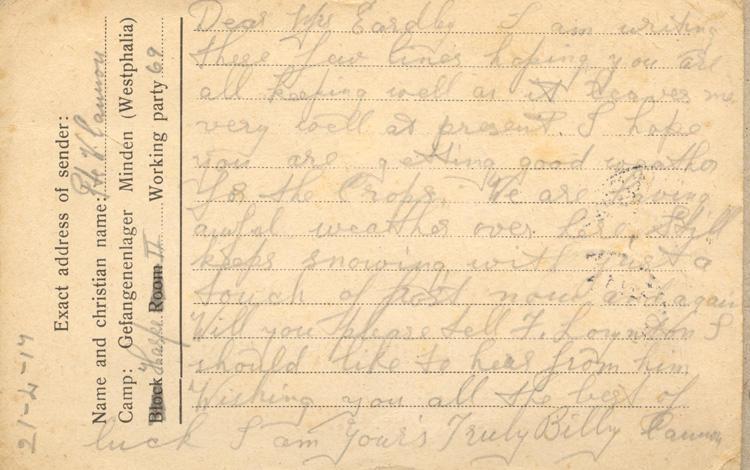 Exact address of sender:
Name and christian name: Pte V Cannon
Camp: Gefangenenlager Minden (Westphalia)
Block Room II Working party 69
21-4-17
Dear Mrs I am writing
these few lines hoping you are
all keeping well as it leaves me
very well at present. I hope
you are getting good weather
for the Crops. We are having
awful weather over here. Still
keeps snowing with just a
touch of frost now and again
Will you please tell F. I
should like to hear from him
Wishing you all the best of
luck I am Your's Truly Billy Cannon